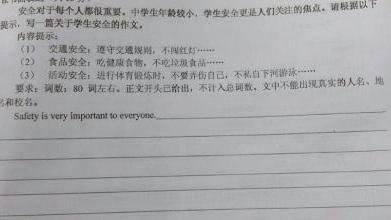 安全对于每个人都很重要。中学生年龄较小，学生安全更是人们关注的焦点。请根据以下
提示，写一篇关于学生安全的作文。
内容提示：
（1） 交通安全：遵守交通规则，不闯红灯……
（2） 食品安全：吃健康食物，不吃垃圾食品……
（3） 活动安全：进行体育锻炼时，不要弄伤自己，不私自下河游泳……
要求：词数：80 词左右。正文开头已给出，不计入总词数。文中不能出现真实的人名、地
名和校名。
Safety is very important to everyone.